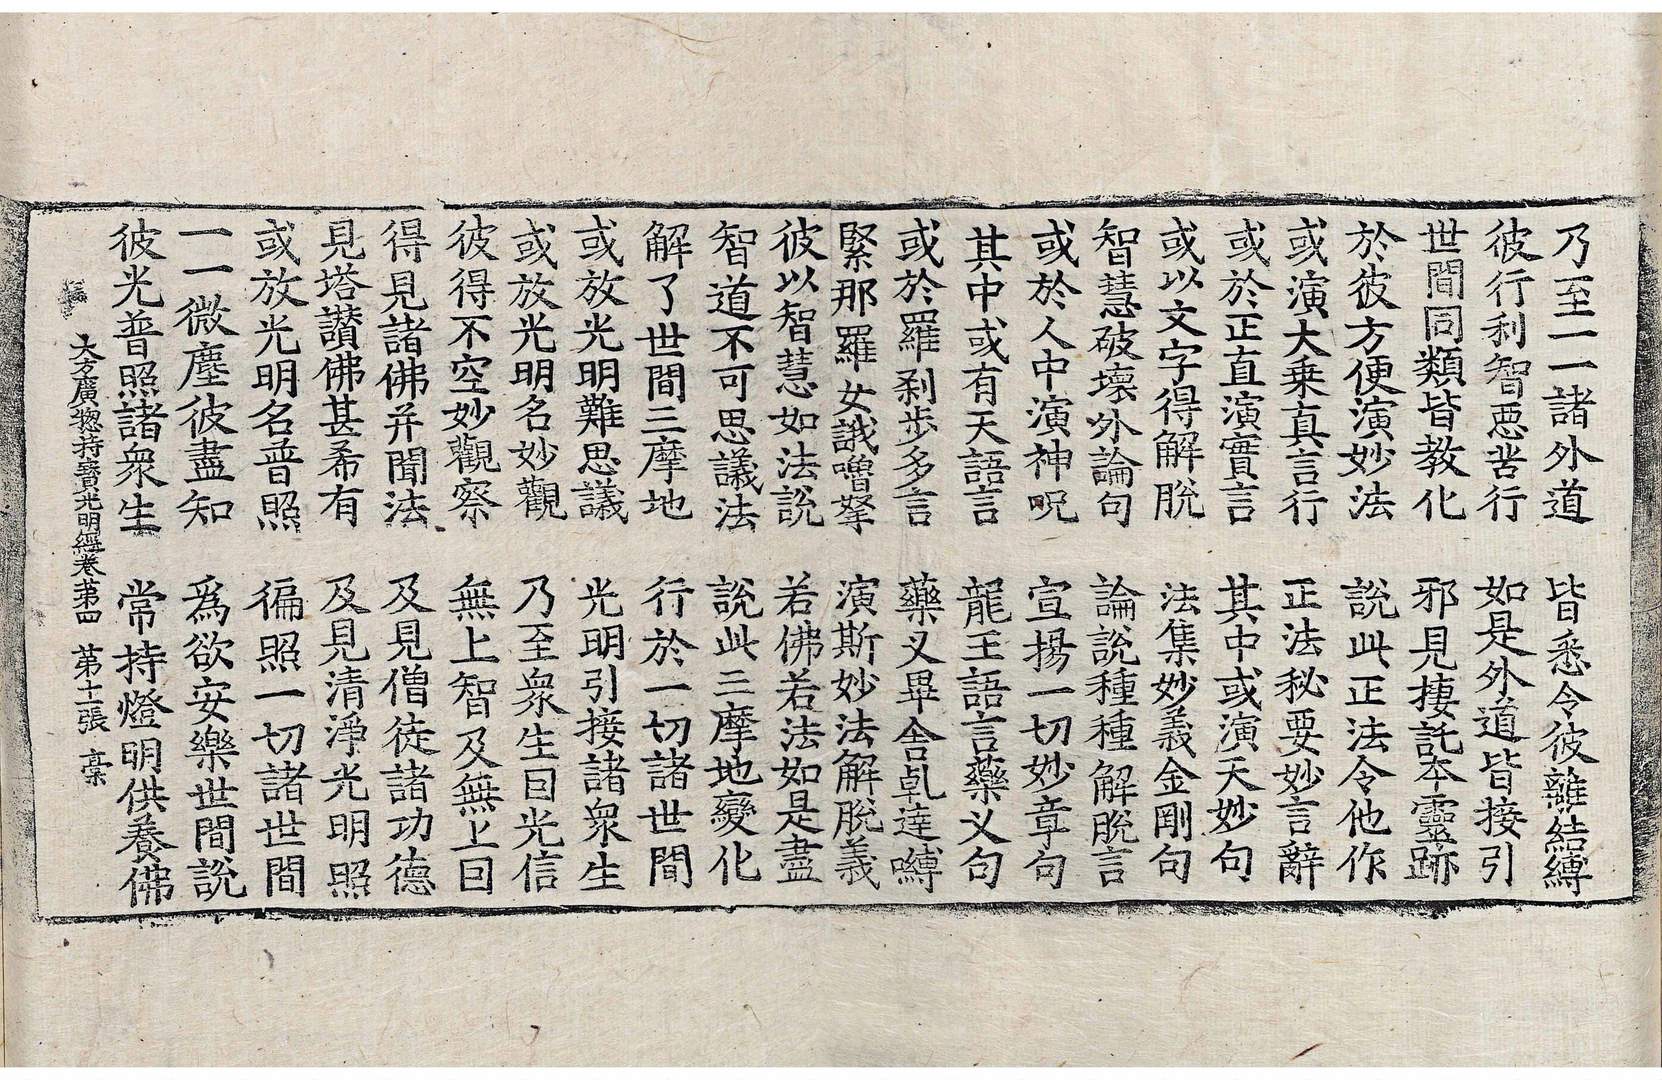 乃至一一諸外道　皆悉令彼離結縛
彼行利智惡苦行　如是外道皆接引
世間同類皆教化　邪見捿託夲靈跡
於彼方便演妙法　說此正法令他作
或演大乗真言行　正法秘要妙言辭
或於正直演實言　其中或演天妙句
或以文字得解脫　法集妙義金剛句
智慧破壞外論句　論說種種解脫言
或於人中演神呪　宣揚一切妙章句
其中或有天語言　龍王語言藥义句
或於羅刹步多言　藥义畢舍乹達嚩
緊那羅女誐嚕拏　演斯妙法解脫義
彼以智慧如法說　若佛若法如是盡
智道不可思議法　說此三摩地變化
解了世間三摩地　行於一切諸世間
或放光明難思議　光明引接諸衆生
或放光明名妙觀　乃至衆生因光信
彼得不空妙觀察　無上智及無上因
得見諸佛并聞法　及見僧徒諸功德
見塔讃佛甚希有　及見清淨光明照
或放光明名普照　徧照一切諸世間
一一微塵彼盡知　爲欲安樂世間說
彼光普照諸衆生　常持燈明供養佛
大方廣揔持寶光明經卷第四　第十一張　橐